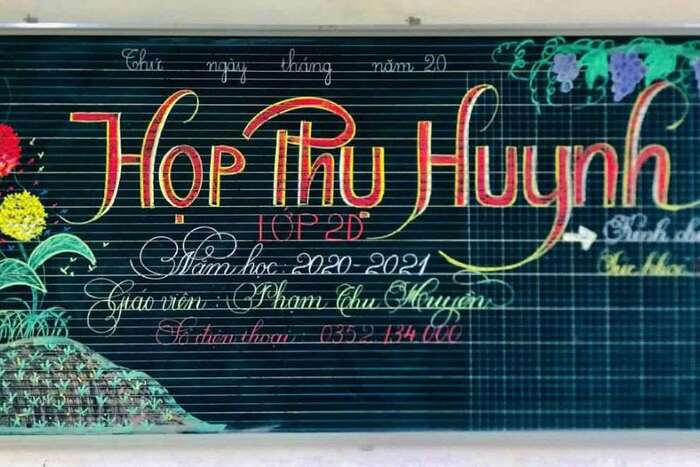 Thứ ngày tháng năm 20
Họp Phụ Huynh
LỚP 2D
Năm học: 2020-2021
Giáo viên: Phạm Thu Huyền
Số điện thoại: 0352.134.000
Kính